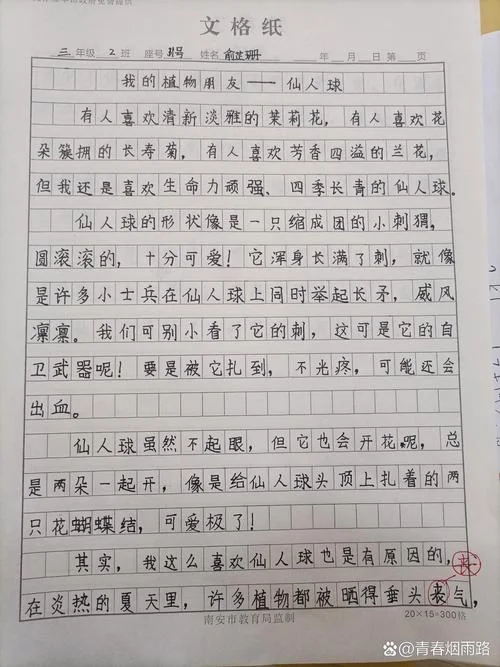 文格纸
三年级 2班 座号 31号 姓名 俞芷珊 年 月 日 第 页
我的植物朋友——仙人球
有人喜欢清新淡雅的茉莉花，有人喜欢花
朵簇拥的长寿菊，有人喜欢芳香四溢的兰花，
但我还是喜欢生命力顽强、四季长青的仙人球。
仙人球的形状像是一只缩成团的小刺猬，
圆滚滚的，十分可爱！它浑身长满了刺，就像
是许多小士兵在仙人球上同时举起长矛，威风
凛凛。我们可别小看了它的刺，这可是它的自
卫武器呢！要是被它扎到，不光疼，可能还会
出血。
仙人球虽然不起眼，但它也会开花呢，总
是两朵一起开，像是给仙人球头顶上扎着的两
只花蝴蝶结，可爱极了！
其实，我这么喜欢仙人球也是有原因的，
在炎热的夏天里，许多植物都被晒得垂头丧气，
南安市教育局监制 20×15=300格
@青春烟雨路